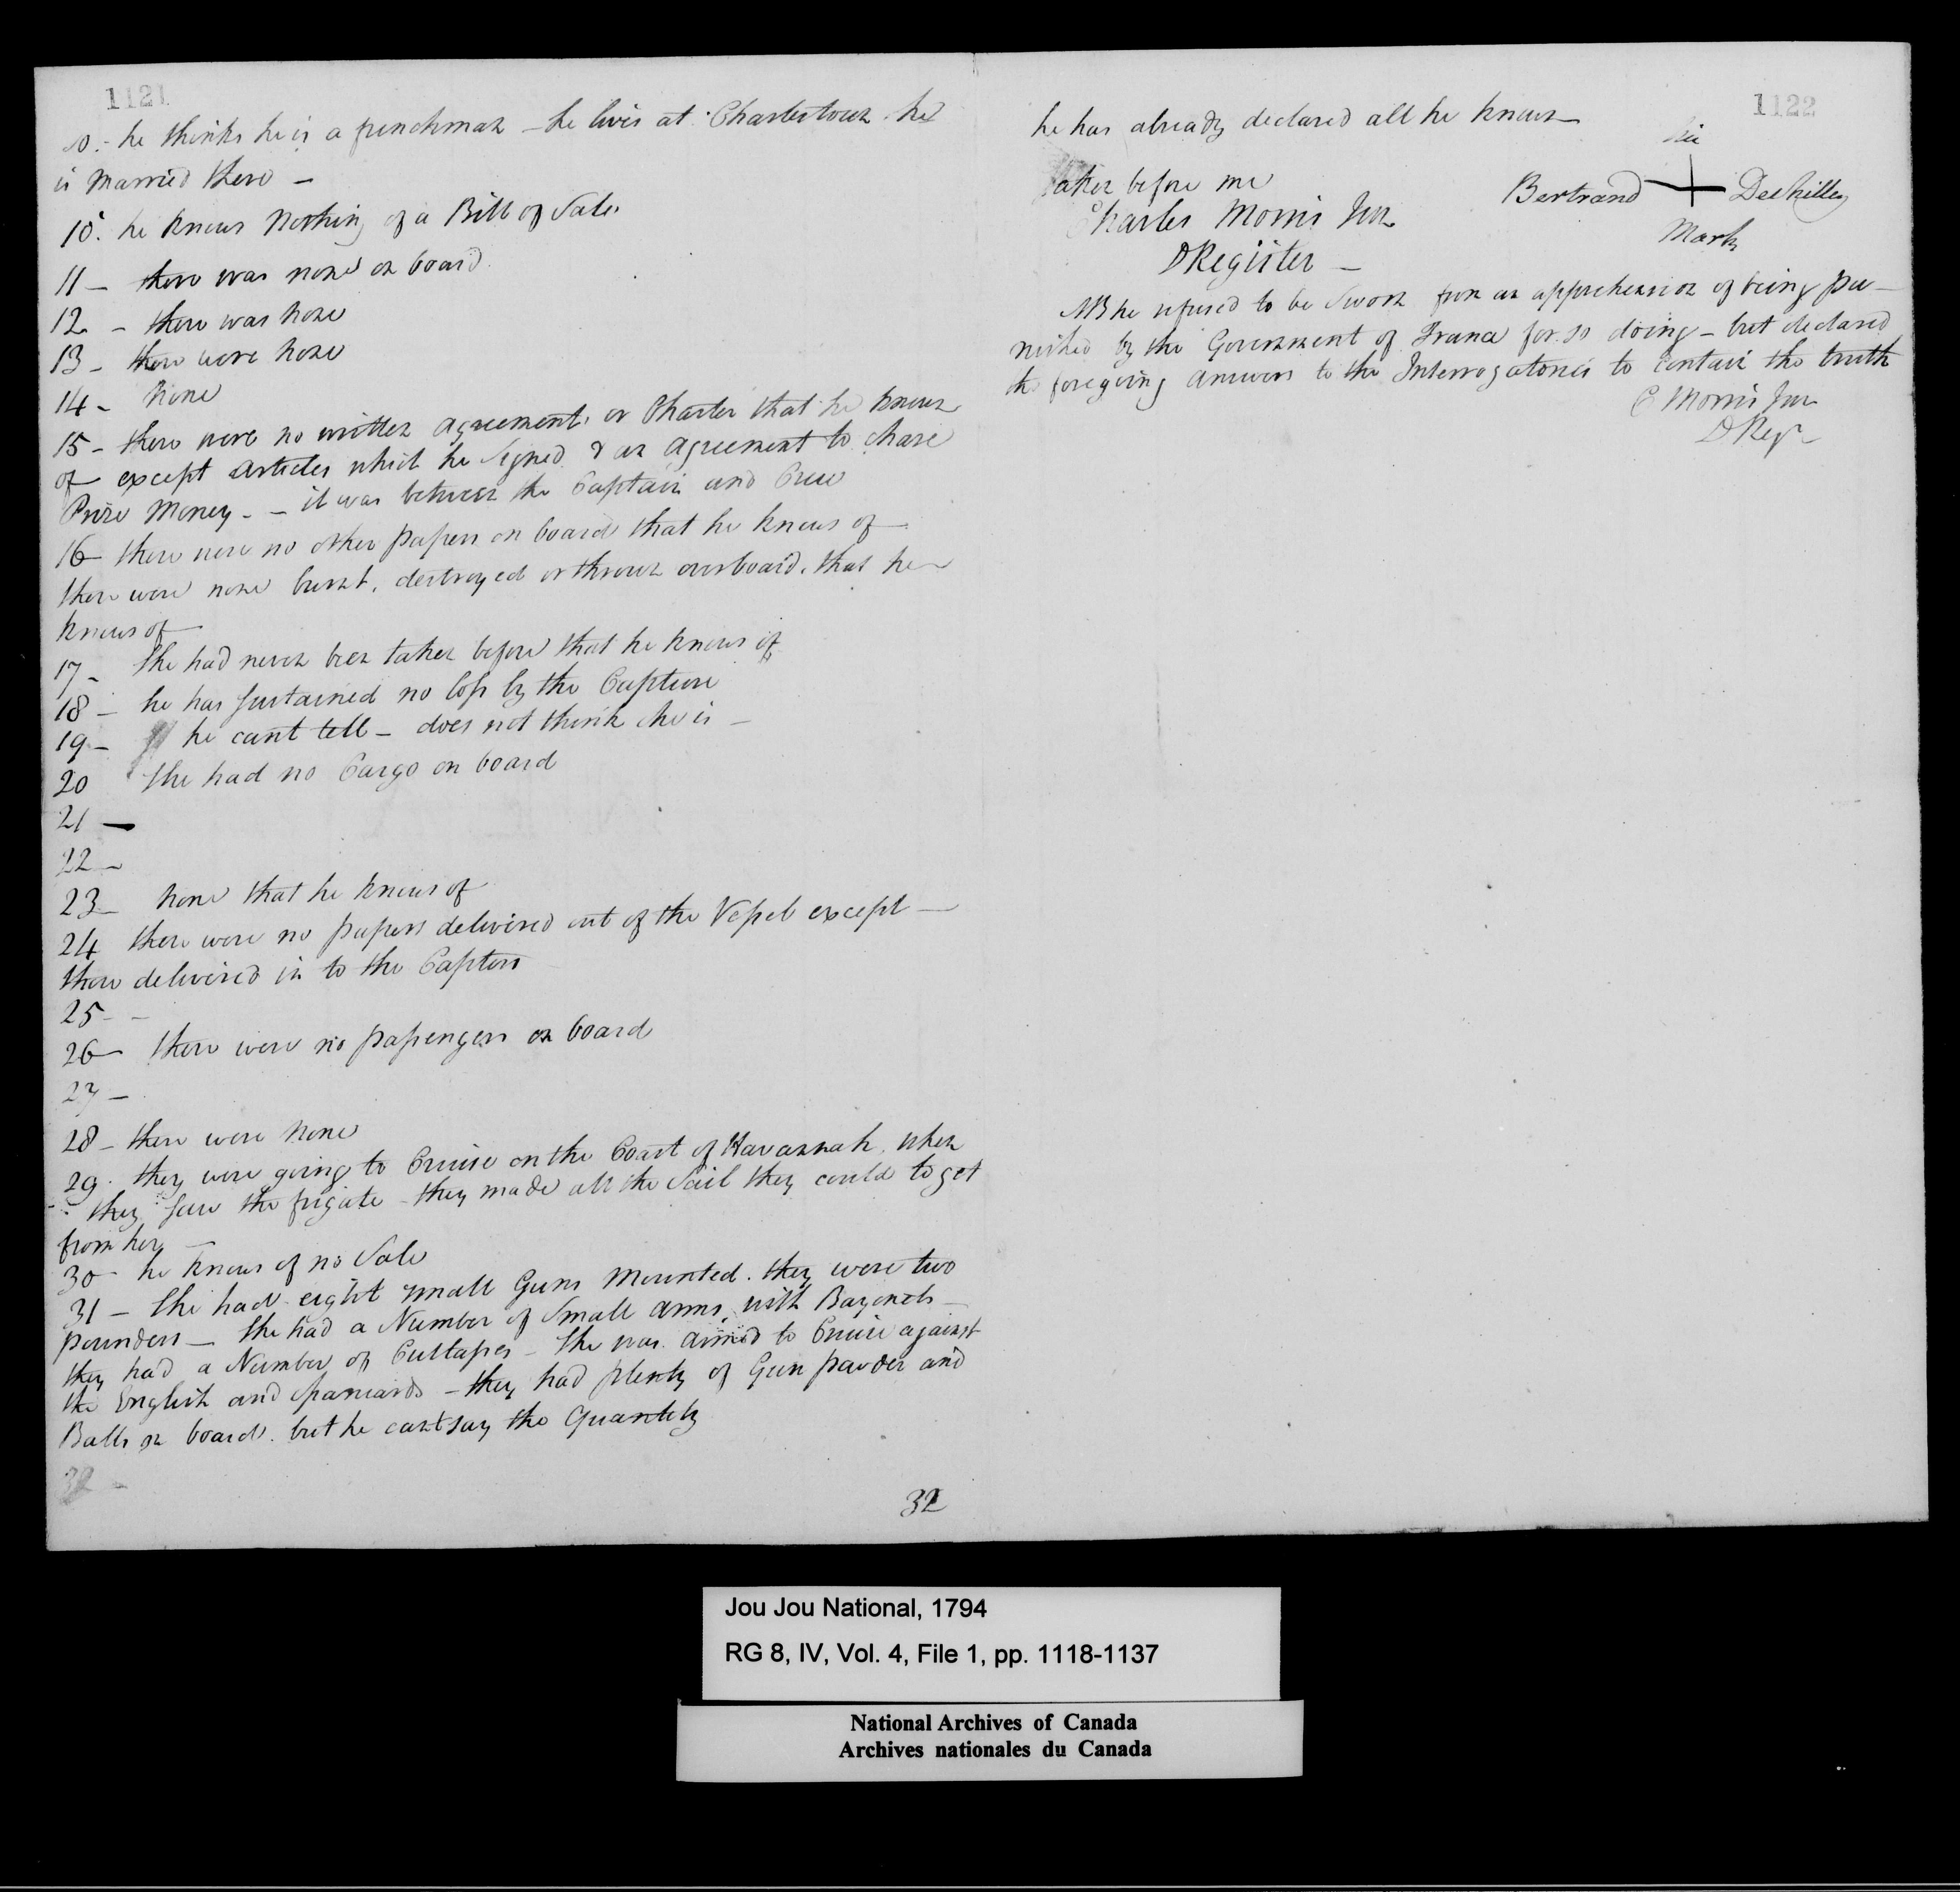 1121
10.- he thinks he is a frenchman - he lives at Charlestown he
is Married there -
10. he knows Nothing of a Bill of Sale.
11 - there was none on board
12 - there was none
13 - there were none
14 - None
15 - there were no written agreement, or Charter that he knows
of except articles which he signed & an agreement to share
Prize Money - - it was between the Captain and Crew
16 - there were no other papers on board that he knows of -
there were none burnt, destroyed or thrown overboard, that he
knows of -
17 - She had never been taken before that he knows of
18 - he has sustained no loss by the Capture
19 - he cant tell - does not think she is -
20 She had no Cargo on board
21 -
22 -
23 - None that he knows of
24 there were no papers delivered out of the Vessel except -
those delivered in to the Captors
25 - -
26 - there were no passengers on board
27 -
28 - there were None
29. they were going to Cruise on the Coast of Havannah, when
they saw the frigate - they made all the Sail they could to get
from her -
30 - he knows of no Sale
31 - She had eight small Guns Mounted. they were two
pounders - She had a Number of Small arms, with Bayonets -
they had a Number of Cutlasses - She was armed to Cruise against
the English and Spaniards - they had plenty of Gun powder and
Balls on board. but he cant say the Quantity
32 -
32
1122
he has already declared all he knows -
his
Bertrand + Deskilley
Mark
taken before me
Charles Morris Jun
D Register -
NB he refused to be Sworn from an apprehension of being pu-
nished by the Government of France for so doing - but declared
the foregoing answers to the Interrogatories to contain the truth
C Morris Jun
D Regr
Jou Jou National, 1794
RG 8, IV, Vol. 4, File 1, pp. 1118-1137
National Archives of Canada
Archives nationales du Canada